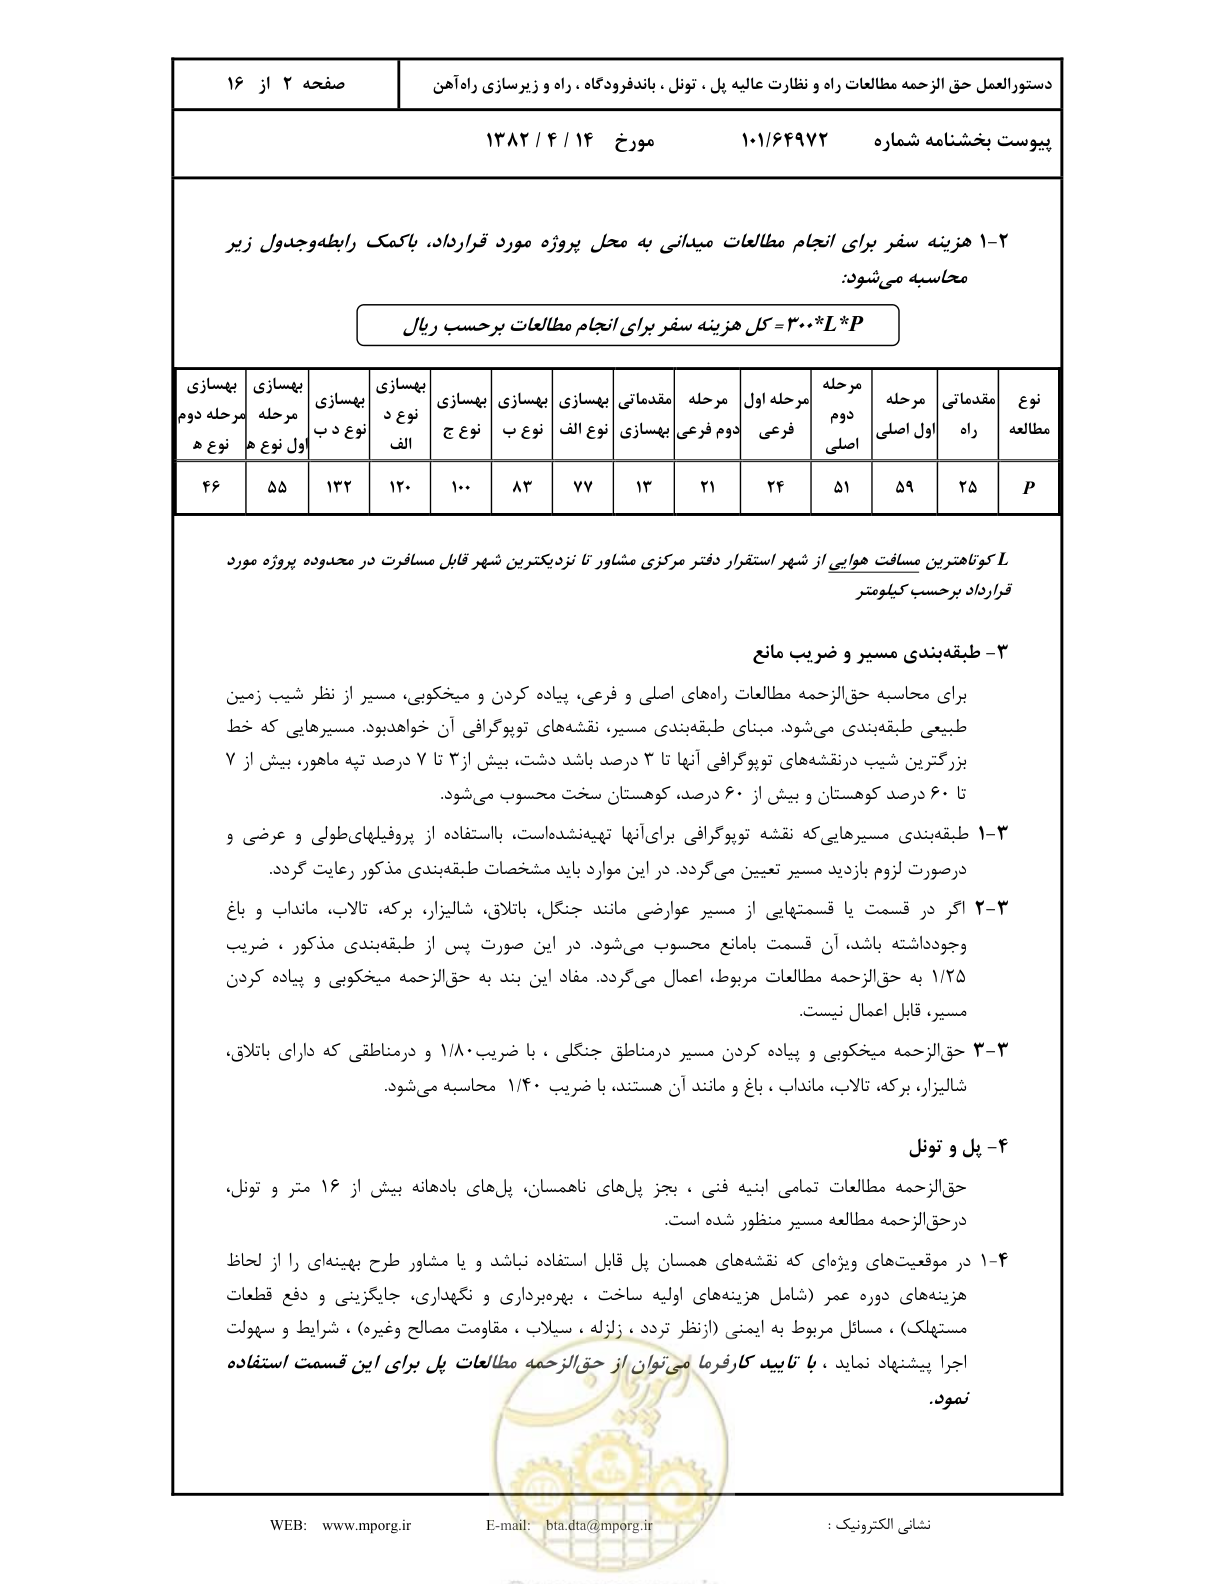 دستورالعمل حق الزحمه مطالعات راه و نظارت عالیه پل ، تونل ، باندفرودگاه ، راه و زیرسازی راه‌آهن
صفحه ۲ از ۱۶
پیوست بخشنامه شماره ۱۰۱/۶۴۹۷۲ مورخ ۱۴ / ۴ / ۱۳۸۲
۱-۲ هزینه سفر برای انجام مطالعات میدانی به محل پروژه مورد قرارداد، باکمک رابطه‌وجدول زیر
محاسبه می‌شود:
۳۰۰*L*P= کل هزینه سفر برای انجام مطالعات برحسب ریال
نوع مطالعه | مقدماتی راه | مرحله اول اصلی | مرحله دوم اصلی | مرحله اول فرعی | مرحله دوم فرعی | مقدماتی بهسازی | بهسازی نوع الف | بهسازی نوع ب | بهسازی نوع ج | بهسازی نوع د الف | بهسازی نوع د ب | بهسازی مرحله اول نوع ه | بهسازی مرحله دوم نوع ه
P | ۲۵ | ۵۹ | ۵۱ | ۲۴ | ۲۱ | ۱۳ | ۷۷ | ۸۳ | ۱۰۰ | ۱۲۰ | ۱۳۲ | ۵۵ | ۴۶
L کوتاهترین مسافت هوایی از شهر استقرار دفتر مرکزی مشاور تا نزدیکترین شهر قابل مسافرت در محدوده پروژه مورد
قرارداد برحسب کیلومتر
۳- طبقه‌بندی مسیر و ضریب مانع
برای محاسبه حق‌الزحمه مطالعات راه‌های اصلی و فرعی، پیاده کردن و میخکوبی، مسیر از نظر شیب زمین
طبیعی طبقه‌بندی می‌شود. مبنای طبقه‌بندی مسیر، نقشه‌های توپوگرافی آن خواهدبود. مسیرهایی که خط
بزرگترین شیب درنقشه‌های توپوگرافی آنها تا ۳ درصد باشد دشت، بیش از۳ تا ۷ درصد تپه ماهور، بیش از ۷
تا ۶۰ درصد کوهستان و بیش از ۶۰ درصد، کوهستان سخت محسوب می‌شود.
۱-۳ طبقه‌بندی مسیرهایی‌که نقشه توپوگرافی برای‌آنها تهیه‌نشده‌است، بااستفاده از پروفیلهای‌طولی و عرضی و
درصورت لزوم بازدید مسیر تعیین می‌گردد. در این موارد باید مشخصات طبقه‌بندی مذکور رعایت گردد.
۲-۳ اگر در قسمت یا قسمتهایی از مسیر عوارضی مانند جنگل، باتلاق، شالیزار، برکه، تالاب، مانداب و باغ
وجودداشته باشد، آن قسمت بامانع محسوب می‌شود. در این صورت پس از طبقه‌بندی مذکور ، ضریب
۱/۲۵ به حق‌الزحمه مطالعات مربوط، اعمال می‌گردد. مفاد این بند به حق‌الزحمه میخکوبی و پیاده کردن
مسیر، قابل اعمال نیست.
۳-۳ حق‌الزحمه میخکوبی و پیاده کردن مسیر درمناطق جنگلی ، با ضریب۱/۸۰ و درمناطقی که دارای باتلاق،
شالیزار، برکه، تالاب، مانداب ، باغ و مانند آن هستند، با ضریب ۱/۴۰ محاسبه می‌شود.
۴- پل و تونل
حق‌الزحمه مطالعات تمامی ابنیه فنی ، بجز پل‌های ناهمسان، پل‌های بادهانه بیش از ۱۶ متر و تونل،
درحق‌الزحمه مطالعه مسیر منظور شده است.
۱-۴ در موقعیت‌های ویژه‌ای که نقشه‌های همسان پل قابل استفاده نباشد و یا مشاور طرح بهینه‌ای را از لحاظ
هزینه‌های دوره عمر (شامل هزینه‌های اولیه ساخت ، بهره‌برداری و نگهداری، جایگزینی و دفع قطعات
مستهلک) ، مسائل مربوط به ایمنی (ازنظر تردد ، زلزله ، سیلاب ، مقاومت مصالح وغیره) ، شرایط و سهولت
اجرا پیشنهاد نماید ، با تایید کارفرما می‌توان از حق‌الزحمه مطالعات پل برای این قسمت استفاده
نمود.
نشانی الکترونیک : E-mail: bta.dta@mporg.ir WEB: www.mporg.ir